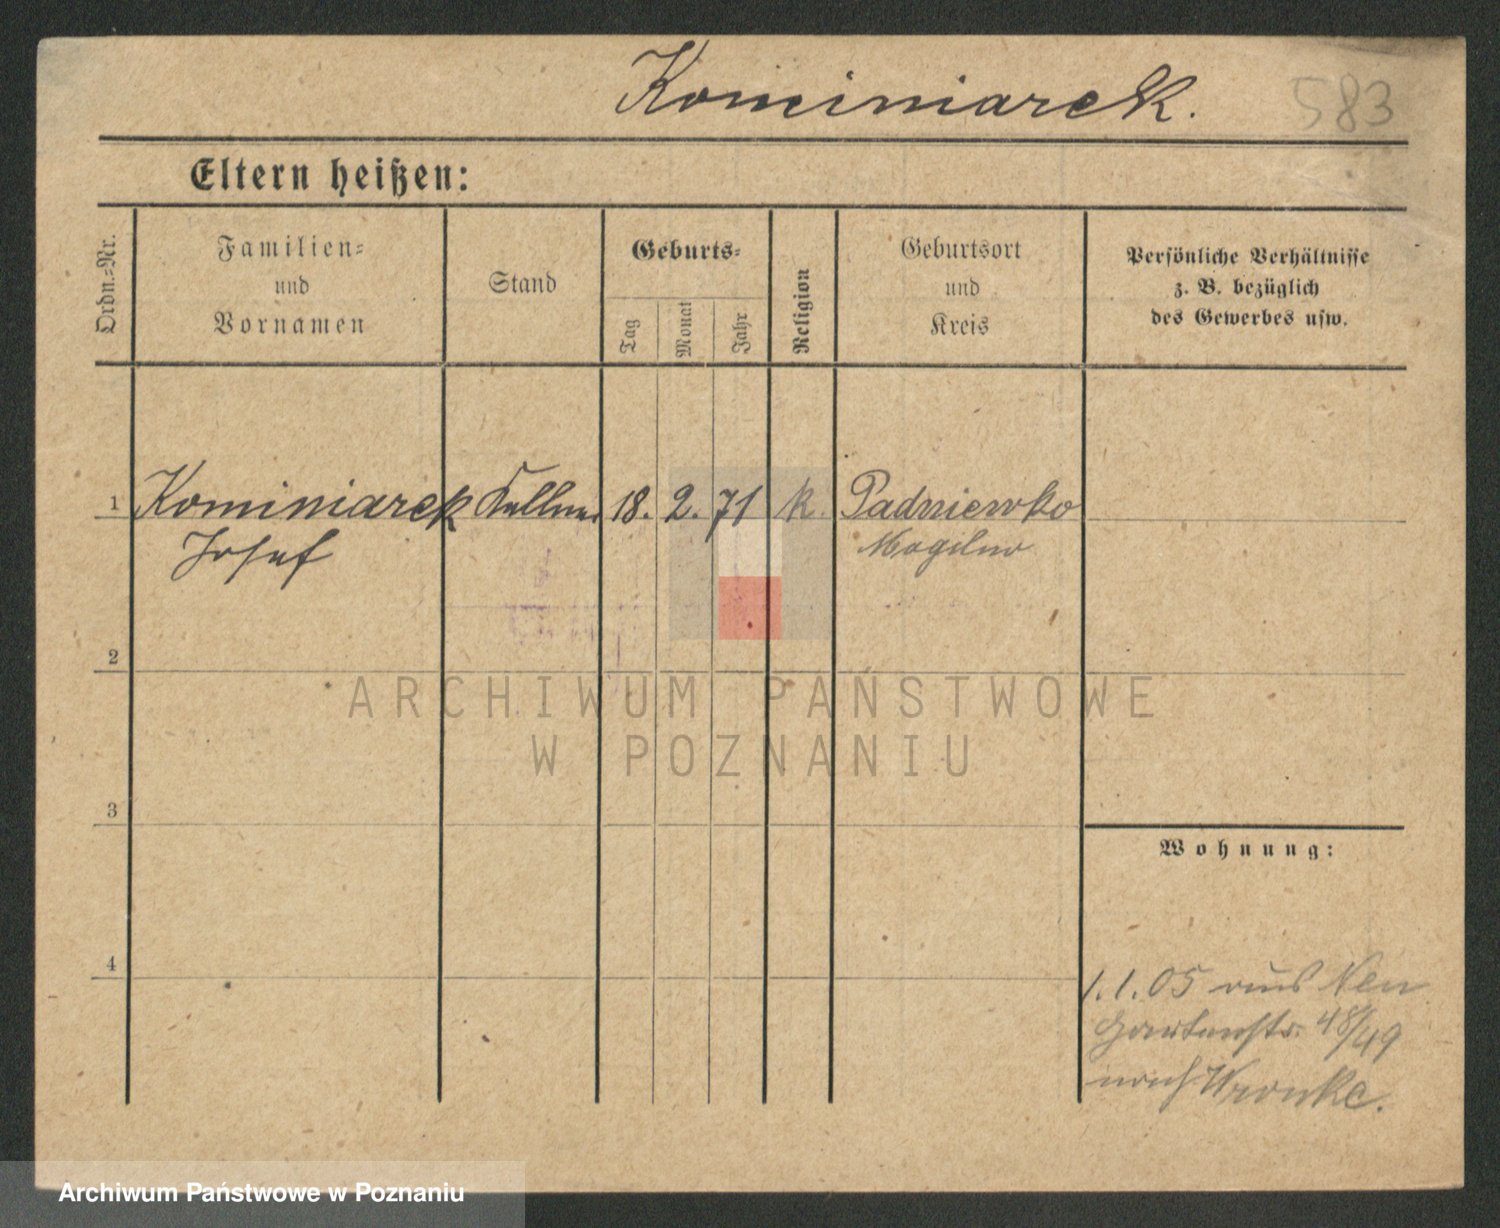 Kominiarek.
583
Eltern heißen:
Ordn.=Nr.
Familien=
und
Vornamen
Stand
Geburts=
Tag
Monat
Jahr
Religion
Geburtsort
und
Kreis
Persönliche Verhältnisse
z. B. bezüglich
des Gewerbes usw.
1 Kominiarek Kellner 18. 2. 71 k. Padniewko
Josef Mogilno
2
ARCHIWUM PAŃSTWOWE
W POZNANIU
3
Wohnung:
4
1.1.05 aus Neu
Gartenstr. 48/49
nach Wronke.
Archiwum Państwowe w Poznaniu